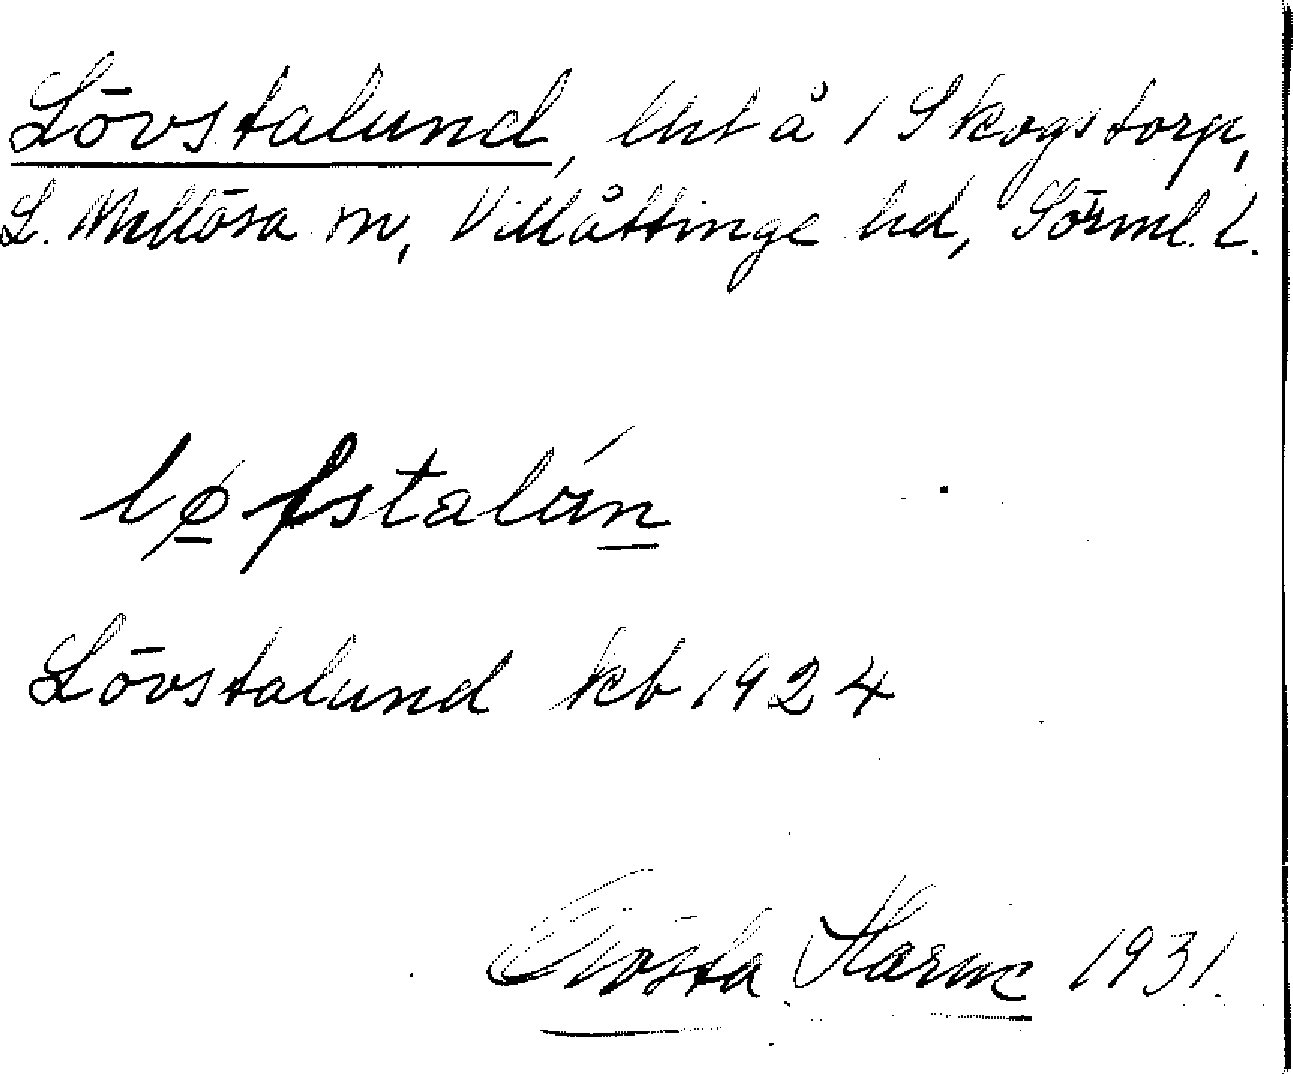 Lövstalund, lht å 1 Skogstorp,
L. Mellösa sn, Villåttinge hd, Sörml. L.
lø̱fstalúṉ
Lövstalund kb 1924
Gösta
1931.